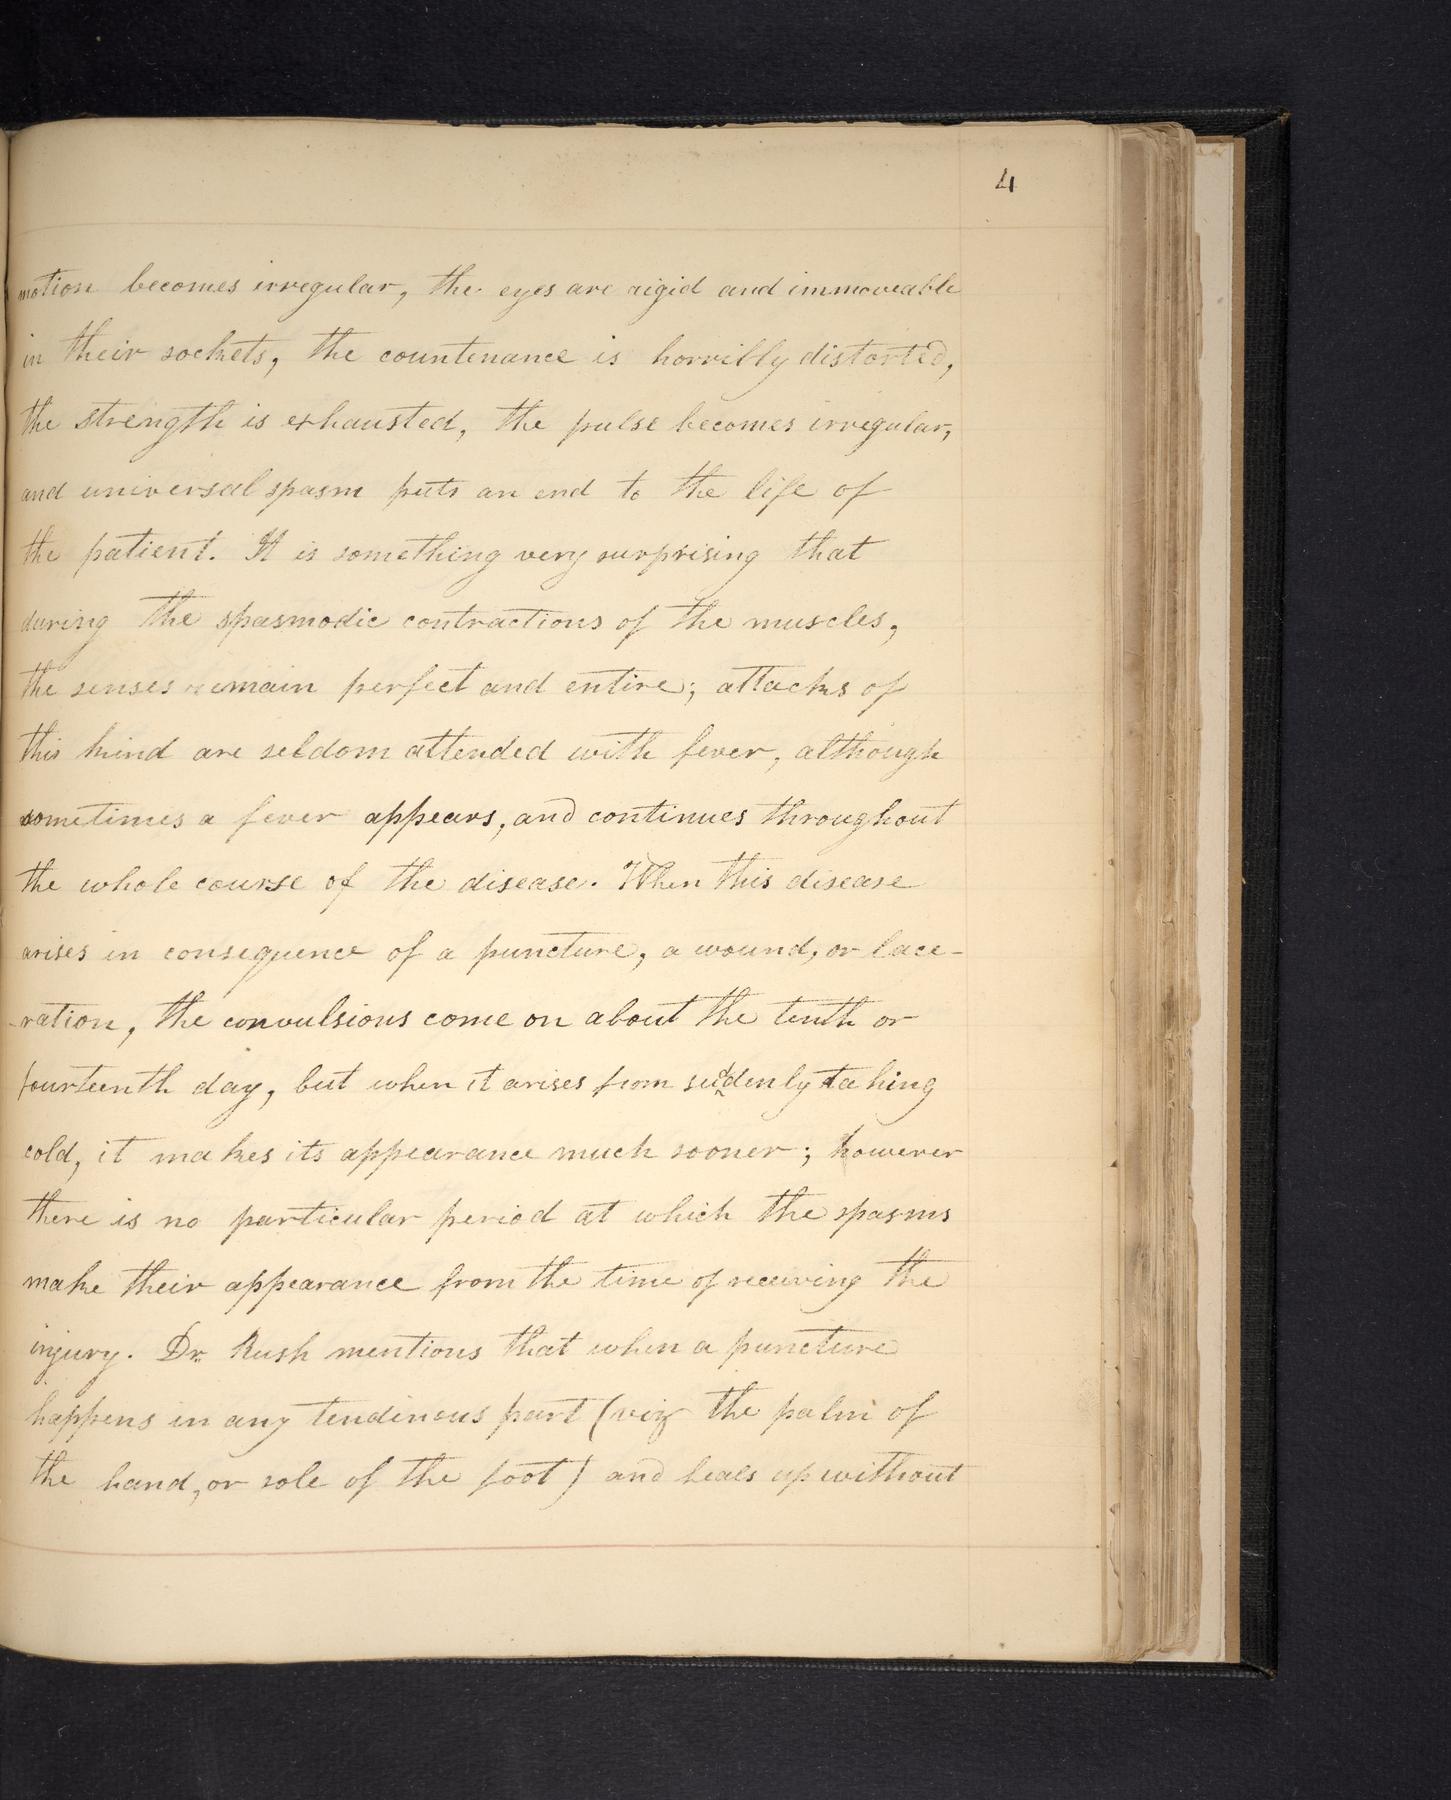 4
motion becomes irregular, the eyes are rigid and immoveable
in their sockets, the countenance is horribly distorted,
the strength is exhausted, the pulse becomes irregular,
and universal spasm puts an end to the life of
the patient. It is something very surprising that
during the spasmodic contractions of the muscles,
the senses remain perfect and entire; attacks of
this kind are seldom attended with fever, although
sometimes a fever appears, and continues throughout
the whole course of the disease. When this disease
arises in consequence of a puncture, a wound, or lace-
-ration, the convulsions come on about the tenth or
fourteenth day, but when it arises from suddenly taking
cold, it makes its appearance much sooner; however
there is no particular period at which the spasms
make their appearance from the time of receiving the
injury. Dr. Rush mentions that when a puncture
happens in any tendinous part (viz the palm of
the hand, or sole of the foot) and heals up without